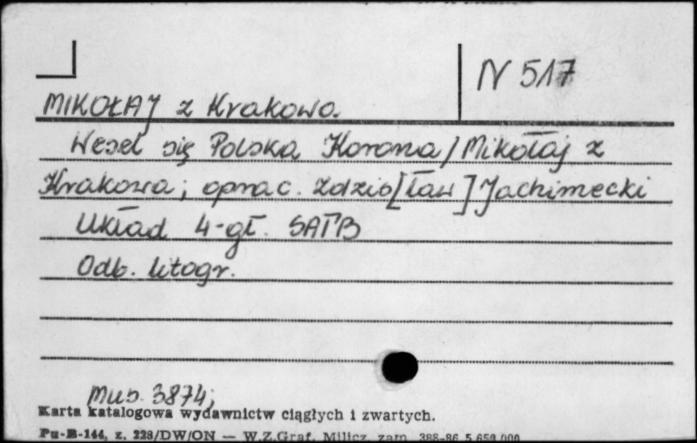 N 517
MIKOŁAJ z Krakowa.
Wesel się Polska Korona / Mikołaj z
Krakowa ; oprac. Zdzis[ław] Jachimecki
Układ 4-gł. SATB
Odb. litogr.
Mus. 3874,
Karta katalogowa wydawnictw ciągłych i zwartych.
Pu-B-144, z. 228/DW/ON — W.Z.Graf. Milicz, zam. 388-86 5.650.000